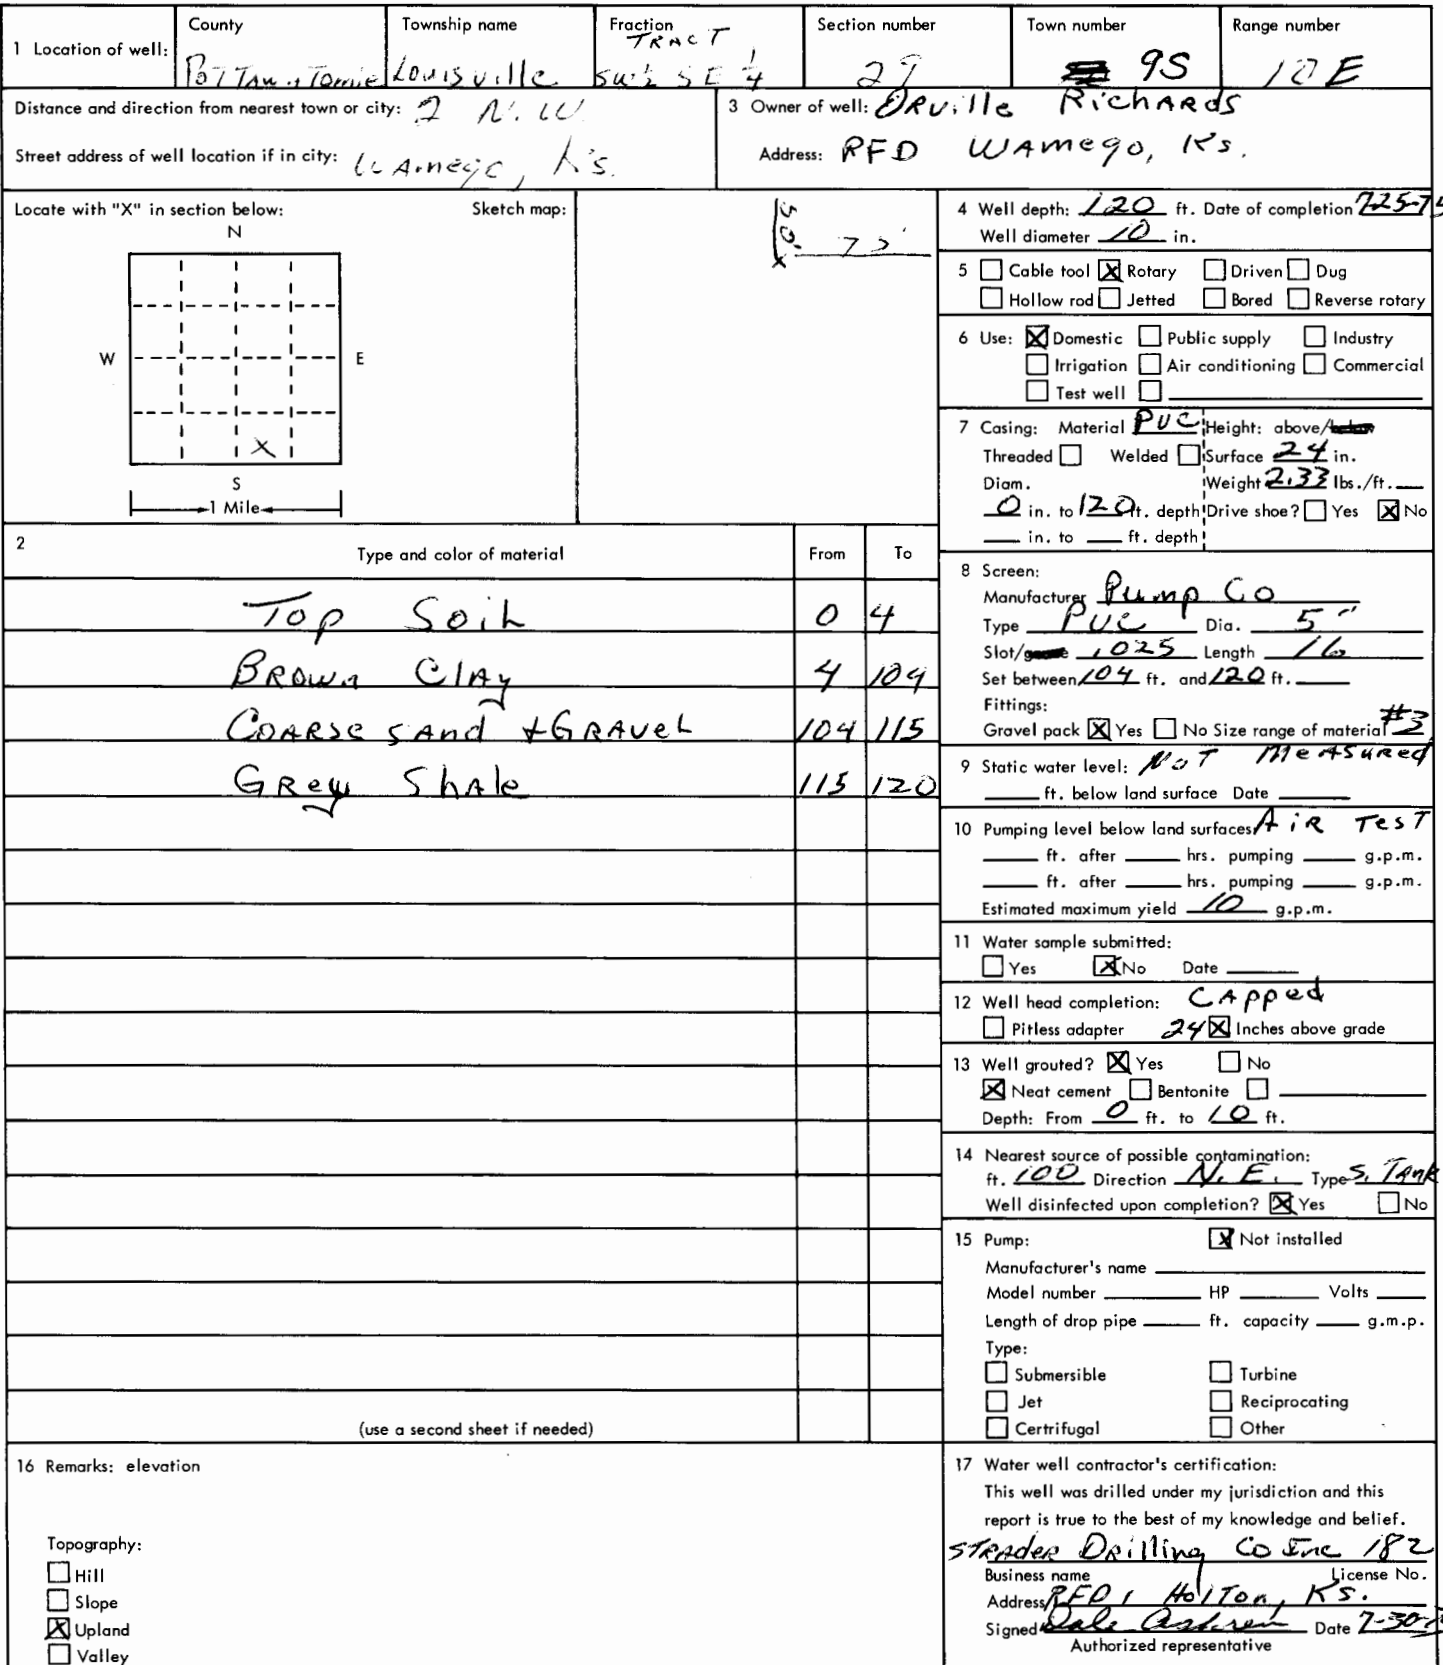 1 Location of well:
County
Township name
Fraction
Section number
Town number
Range number
TRACT
Louisville
SE 1/4
9S
10E
Distance and direction from nearest town or city: 2 N.W.
Street address of well location if in city: Wamego, K's.
3 Owner of well: ORville RichARds
Address: RFD WAmego, K's.
Locate with "X" in section below:
Sketch map:
N
W
E
X
S
1 Mile
50'
75'
x
4 Well depth: 120 ft. Date of completion 7-25-75
Well diameter 10 in.
5 Cable tool X Rotary Driven Dug
Hollow rod Jetted Bored Reverse rotary
6 Use: X Domestic Public supply Industry
Irrigation Air conditioning Commercial
Test well
7 Casing: Material PVC Height: above/below
Threaded Welded Surface 24 in.
Diam. Weight 2.33 lbs./ft.
0 in. to 120 ft. depth Drive shoe? Yes X No
in. to ft. depth
2
Type and color of material From To
Top Soil 0 4
BRown Clay 4 104
COARSe sAnd + GRAVeL 104 115
GRey ShAle 115 120
(use a second sheet if needed)
8 Screen:
Manufacturer Pump Co
Type PVC Dia. 5"
Slot/ .025 Length 16
Set between 104 ft. and 120 ft.
Fittings:
Gravel pack X Yes No Size range of material #3
9 Static water level: NoT MeASuRed
ft. below land surface Date
10 Pumping level below land surfaces AiR TesT
ft. after hrs. pumping g.p.m.
ft. after hrs. pumping g.p.m.
Estimated maximum yield 10 g.p.m.
11 Water sample submitted:
Yes X No Date
12 Well head completion: CApped
Pitless adapter 24 X Inches above grade
13 Well grouted? X Yes No
X Neat cement Bentonite
Depth: From 0 ft. to 10 ft.
14 Nearest source of possible contamination:
ft. 100 Direction N.E. Type S. Tank
Well disinfected upon completion? X Yes No
15 Pump: X Not installed
Manufacturer's name
Model number HP Volts
Length of drop pipe ft. capacity g.m.p.
Type:
Submersible Turbine
Jet Reciprocating
Certrifugal Other
16 Remarks: elevation
Topography:
Hill
Slope
X Upland
Valley
17 Water well contractor's certification:
This well was drilled under my jurisdiction and this
report is true to the best of my knowledge and belief.
STRAdeR DRilling Co Inc 182
Business name License No.
Address RFD 1 HolTon, K's.
Signed Dale Date 7-30-
Authorized representative